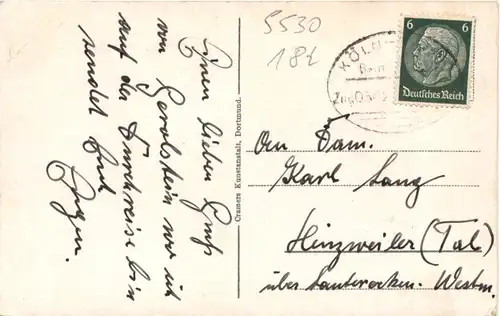 5530
18t
Einen lieben Gruß
von Gerolstein wo ich
auf der Durchreise bin
sendet Euch
Eugen.
Cramers Kunstanstalt, Dortmund.
KÖLN
Bahnpost
Zug
6 6
Deutsches Reich
An Fam.
Karl Lang
Hinzweiler (Tal)
über Lauterecken. Westm.